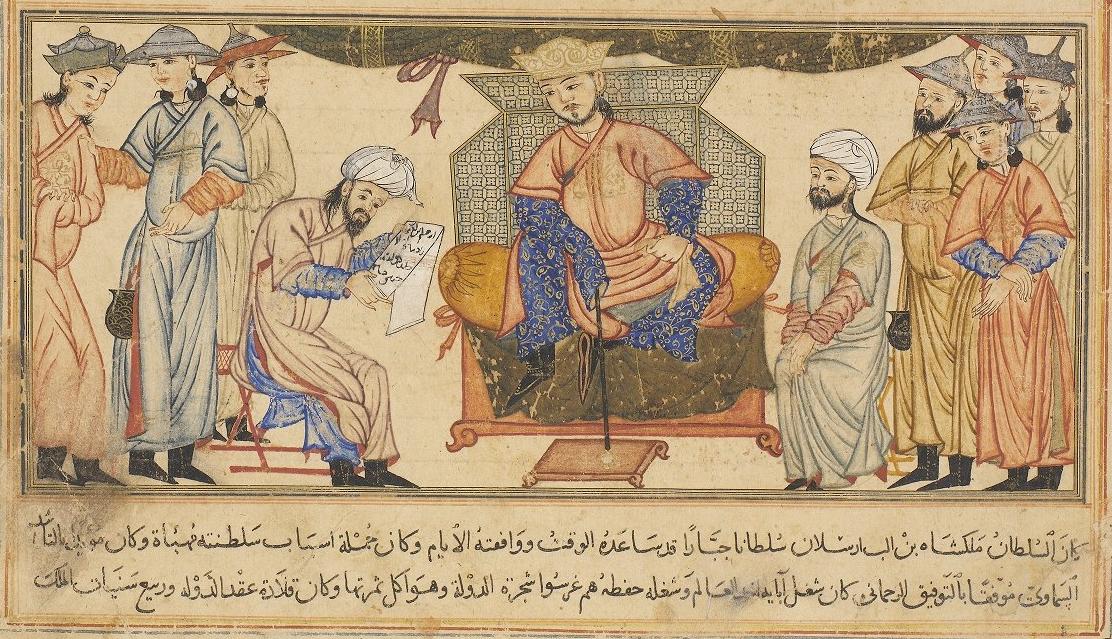 كان السلطان ملكشاه بن الب ارسلان سلطانا جبارًا قد ساعده الوقت ووافقته الايام وكان جملة اسباب سلطنته مهيأة وكان
السماوي موفقًا بالتوفيق الرحماني كان شغل آبايه العالم وشغله حفظه هم غرسوا شجرة الدولة وهو اكل ثمرتها وكان قلادة عقد الدولة وربيع الملك